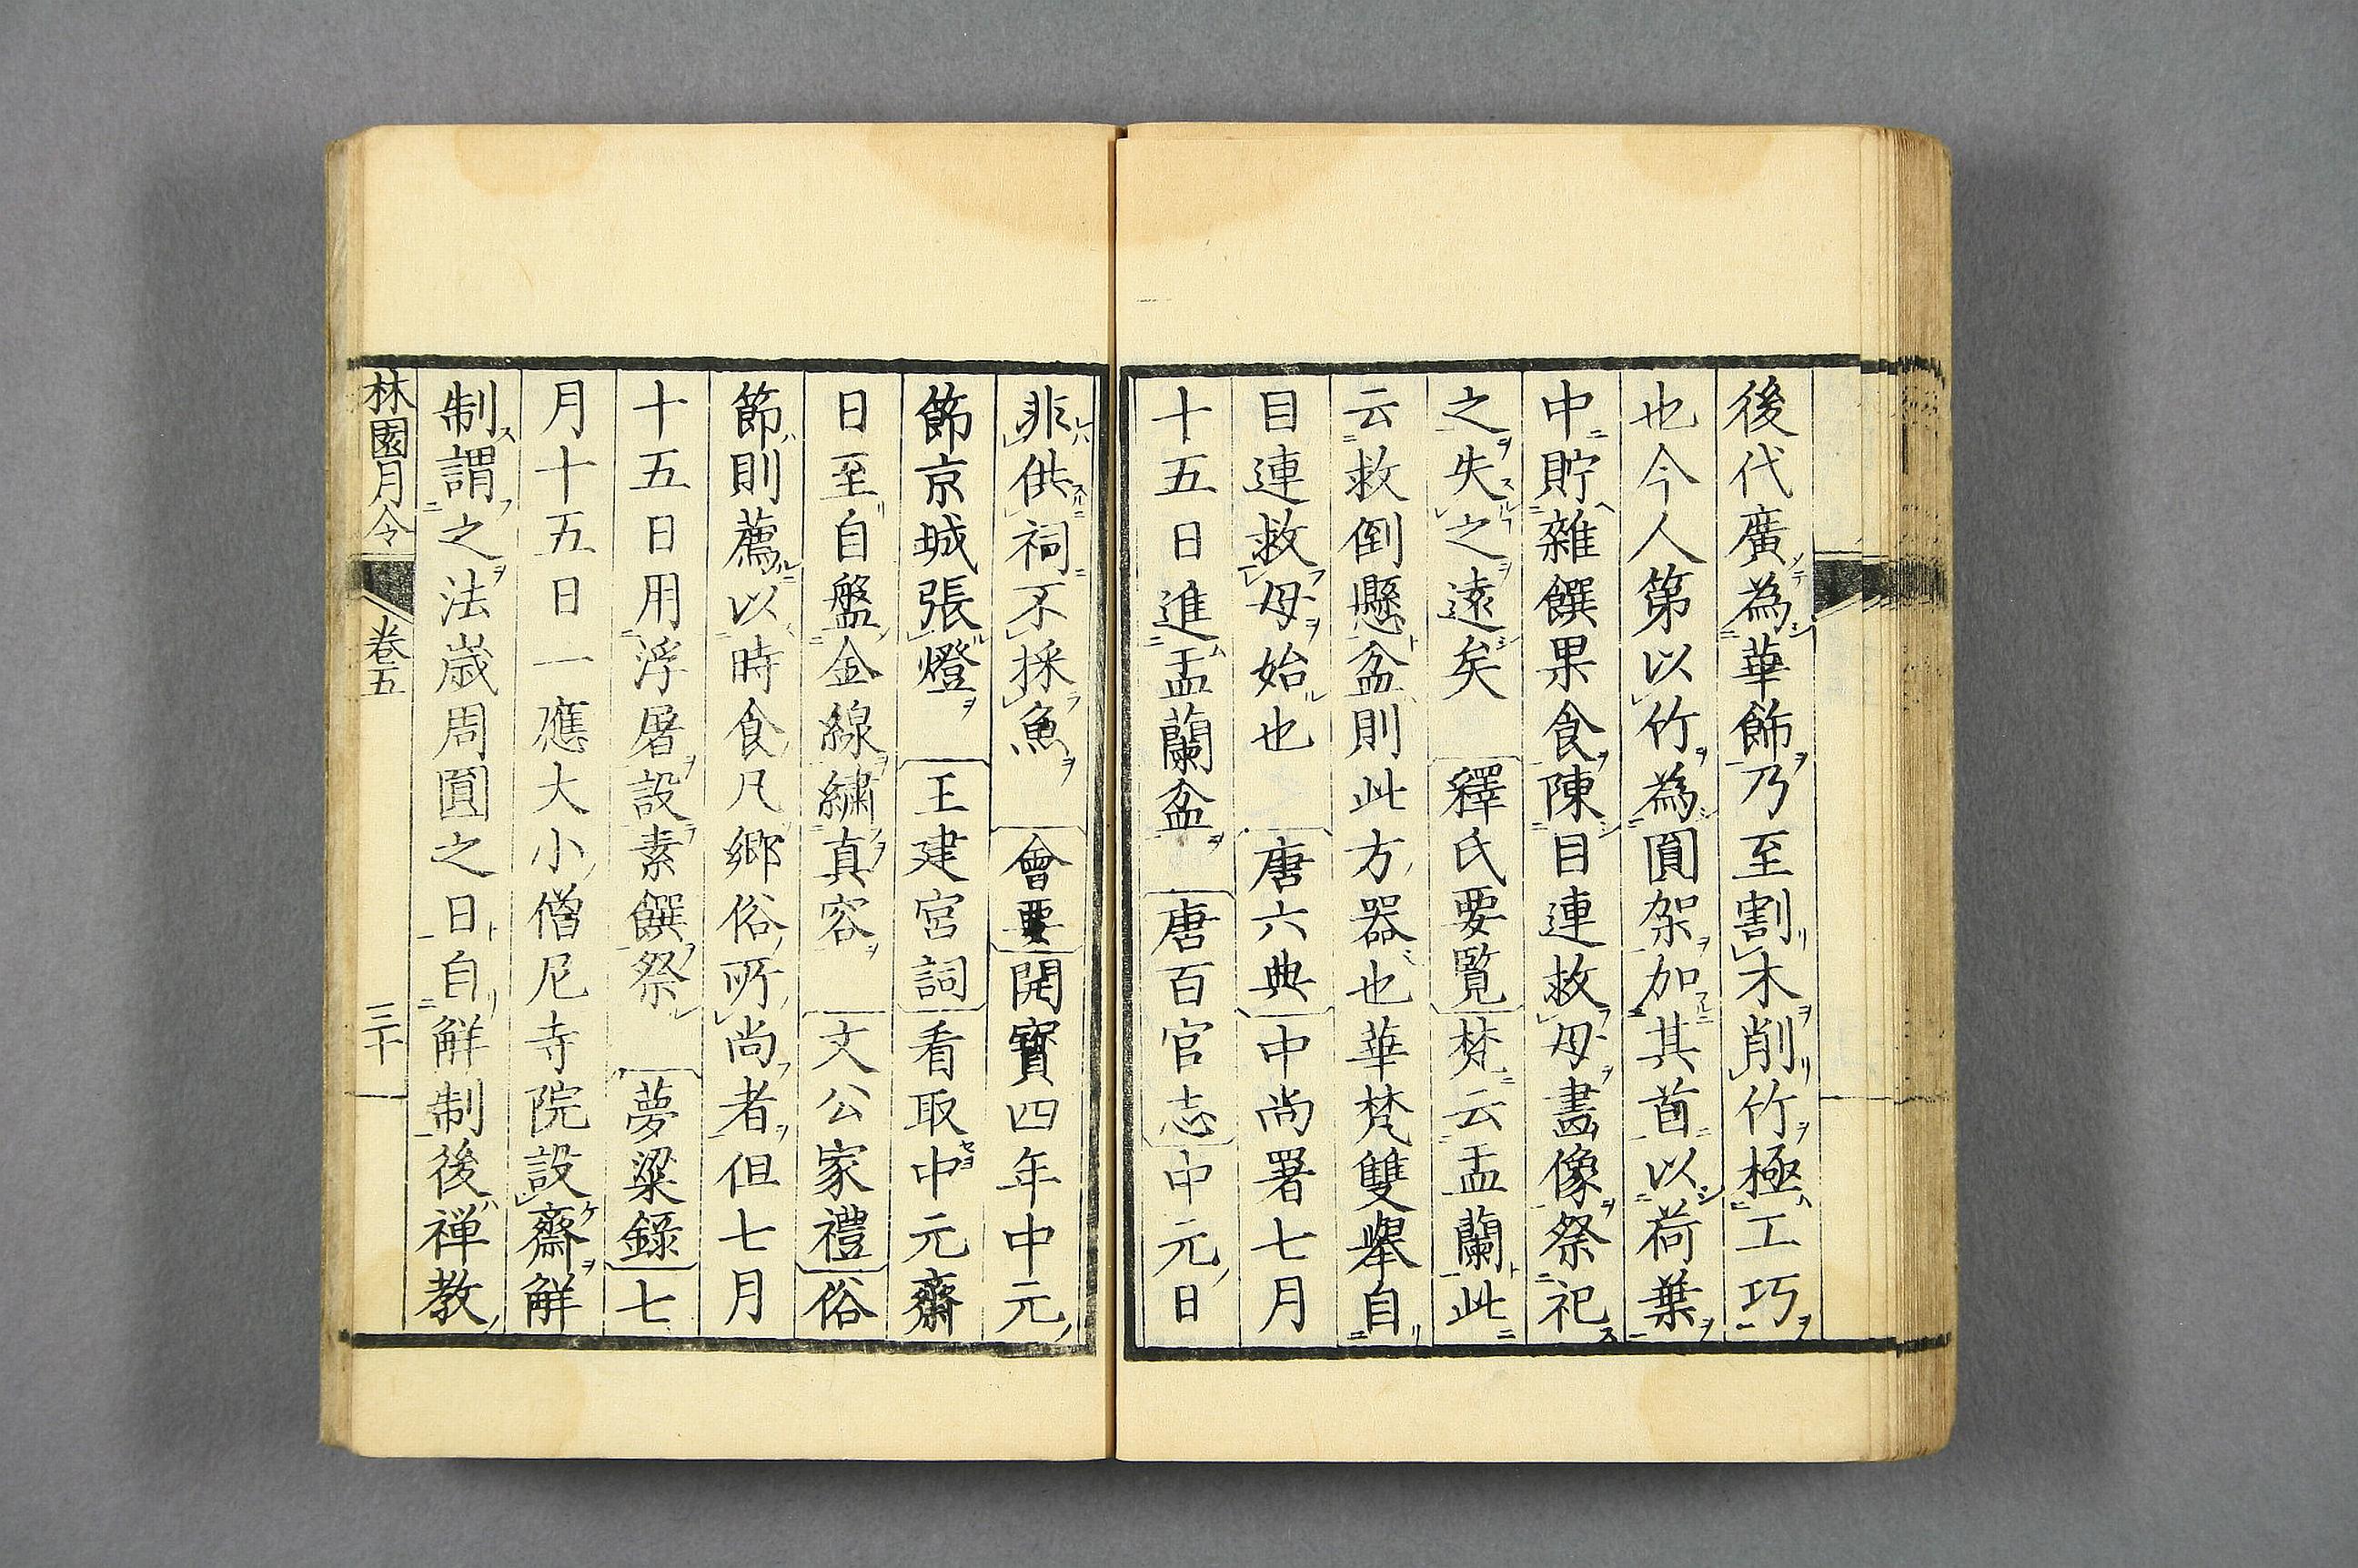 後代廣為華飾乃至割木削竹極工巧
也今人第以竹為圓架加其首以荷葉
中貯雜饌果食陳目連救母畫像祭祀
之失之遠矣 釋氏要覧梵云盂蘭此
云救倒懸盆則此方器也華梵雙舉自
目連救母始也 唐六典中尚署七月
十五日進盂蘭盆 唐百官志中元日
非供祠不採魚 會要開寶四年中元
節京城張燈 王建宮詞看取中元齋
日至自盤金線繍真容 文公家禮俗
節則薦以時食凡鄉俗所尚者但七月
十五日用浮屠設素饌祭 夢粱錄七
月十五日一應大小僧尼寺院設齋解
制謂之法歳周圓之日自解制後禅教
林園月令 卷五 三十一